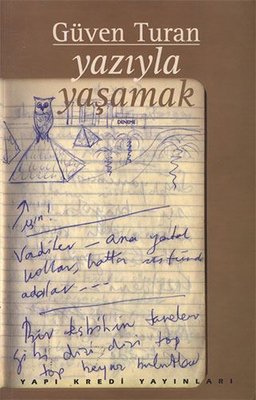 Güven Turan
yazıyla
yaşamak
DENEME
için!
Vadiler – ana yatak
kollar, hatta
adalar – – –
Bir tesbihin taneleri
gibi, dizi, dizi top
top beyaz bulutlar
YAPI KREDİ YAYINLARI